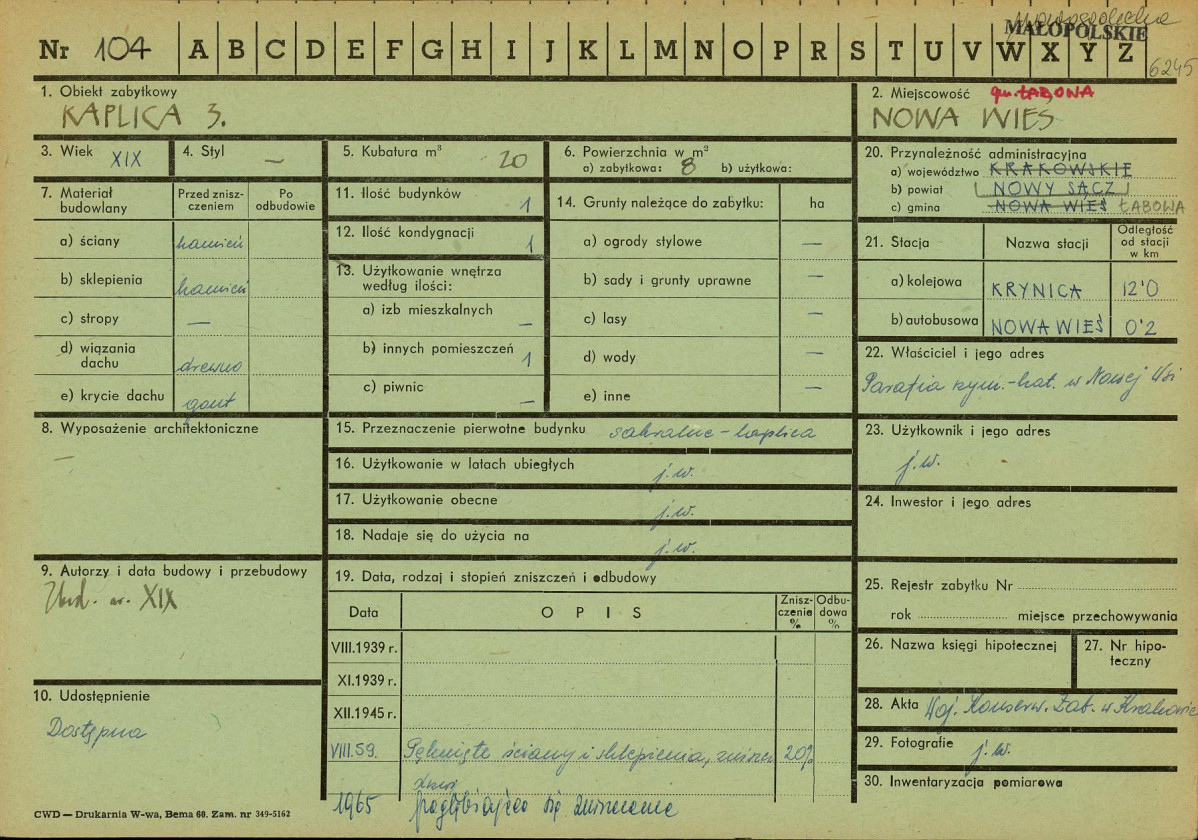 MAŁOPOLSKIE
Nr 104 A B C D E F G H I J K L M N O P R S T U V W X Y Z
6245
1. Obiekt zabytkowy
KAPLICA 3.
2. Miejscowość gm. ŁABOWA
NOWA WIEŚ
3. Wiek XIX
4. Styl —
5. Kubatura m³ 20
6. Powierzchnia w m²
a) zabytkowa: 8 b) użytkowa:
20. Przynależność administracyjna
a) województwo KRAKOWSKIE
b) powiat NOWY SĄCZ
c) gmina NOWA WIEŚ ŁABOWA
7. Materiał budowlany
Przed zniszczeniem
Po odbudowie
a) ściany kamień
b) sklepienia kamień
c) stropy —
d) wiązania dachu drewno
e) krycie dachu gont
11. Ilość budynków 1
12. Ilość kondygnacji 1
13. Użytkowanie wnętrza
według ilości:
a) izb mieszkalnych —
b) innych pomieszczeń 1
c) piwnic —
14. Grunty należące do zabytku: ha
a) ogrody stylowe —
b) sady i grunty uprawne —
c) lasy —
d) wody —
e) inne —
21. Stacja Nazwa stacji Odległość od stacji w km
a) kolejowa KRYNICA 12'0
b) autobusowa NOWA WIEŚ 0'2
22. Właściciel i jego adres
Parafia rzym.-kat. w Nowej Wsi
8. Wyposażenie architektoniczne
—
15. Przeznaczenie pierwotne budynku sakralne - kaplica
16. Użytkowanie w latach ubiegłych j.w.
17. Użytkowanie obecne j.w.
18. Nadaje się do użycia na j.w.
23. Użytkownik i jego adres
j.w.
24. Inwestor i jego adres
9. Autorzy i data budowy i przebudowy
Zbud. w. XIX
19. Data, rodzaj i stopień zniszczeń i odbudowy
Data OPIS Zniszczenie % Odbudowa %
VIII.1939 r.
XI.1939 r.
XII.1945 r.
VIII.59. Pęknięte ściany i sklepienia, zniszcz. 20%
1965 pogłębiające się zniszczenie
25. Rejestr zabytku Nr
rok miejsce przechowywania
26. Nazwa księgi hipotecznej
27. Nr hipoteczny
10. Udostępnienie
Dostępna
28. Akta Woj. Konserw. Zab. w Krakowie
29. Fotografie j.w.
30. Inwentaryzacja pomiarowa
CWD — Drukarnia W-wa, Bema 60. Zam. nr 349-5162